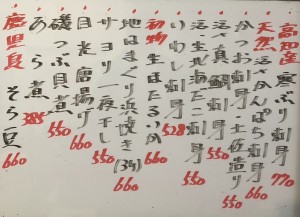 高知産 寒ぶり刺身 770
天然 活〆かんぱち刺身 660
かつお刺身 土佐造り 550
活〆鯛刺身 660
活・生北海たこ刺身 550
いわし刺身 528
初物 生ほたるいか 660
地はまぐり浜焼き(3ヶ) 660
サヨリ一夜干し 550
目光唐揚げ 660
磯つぶ貝煮 550
あら煮 385
そら豆 660